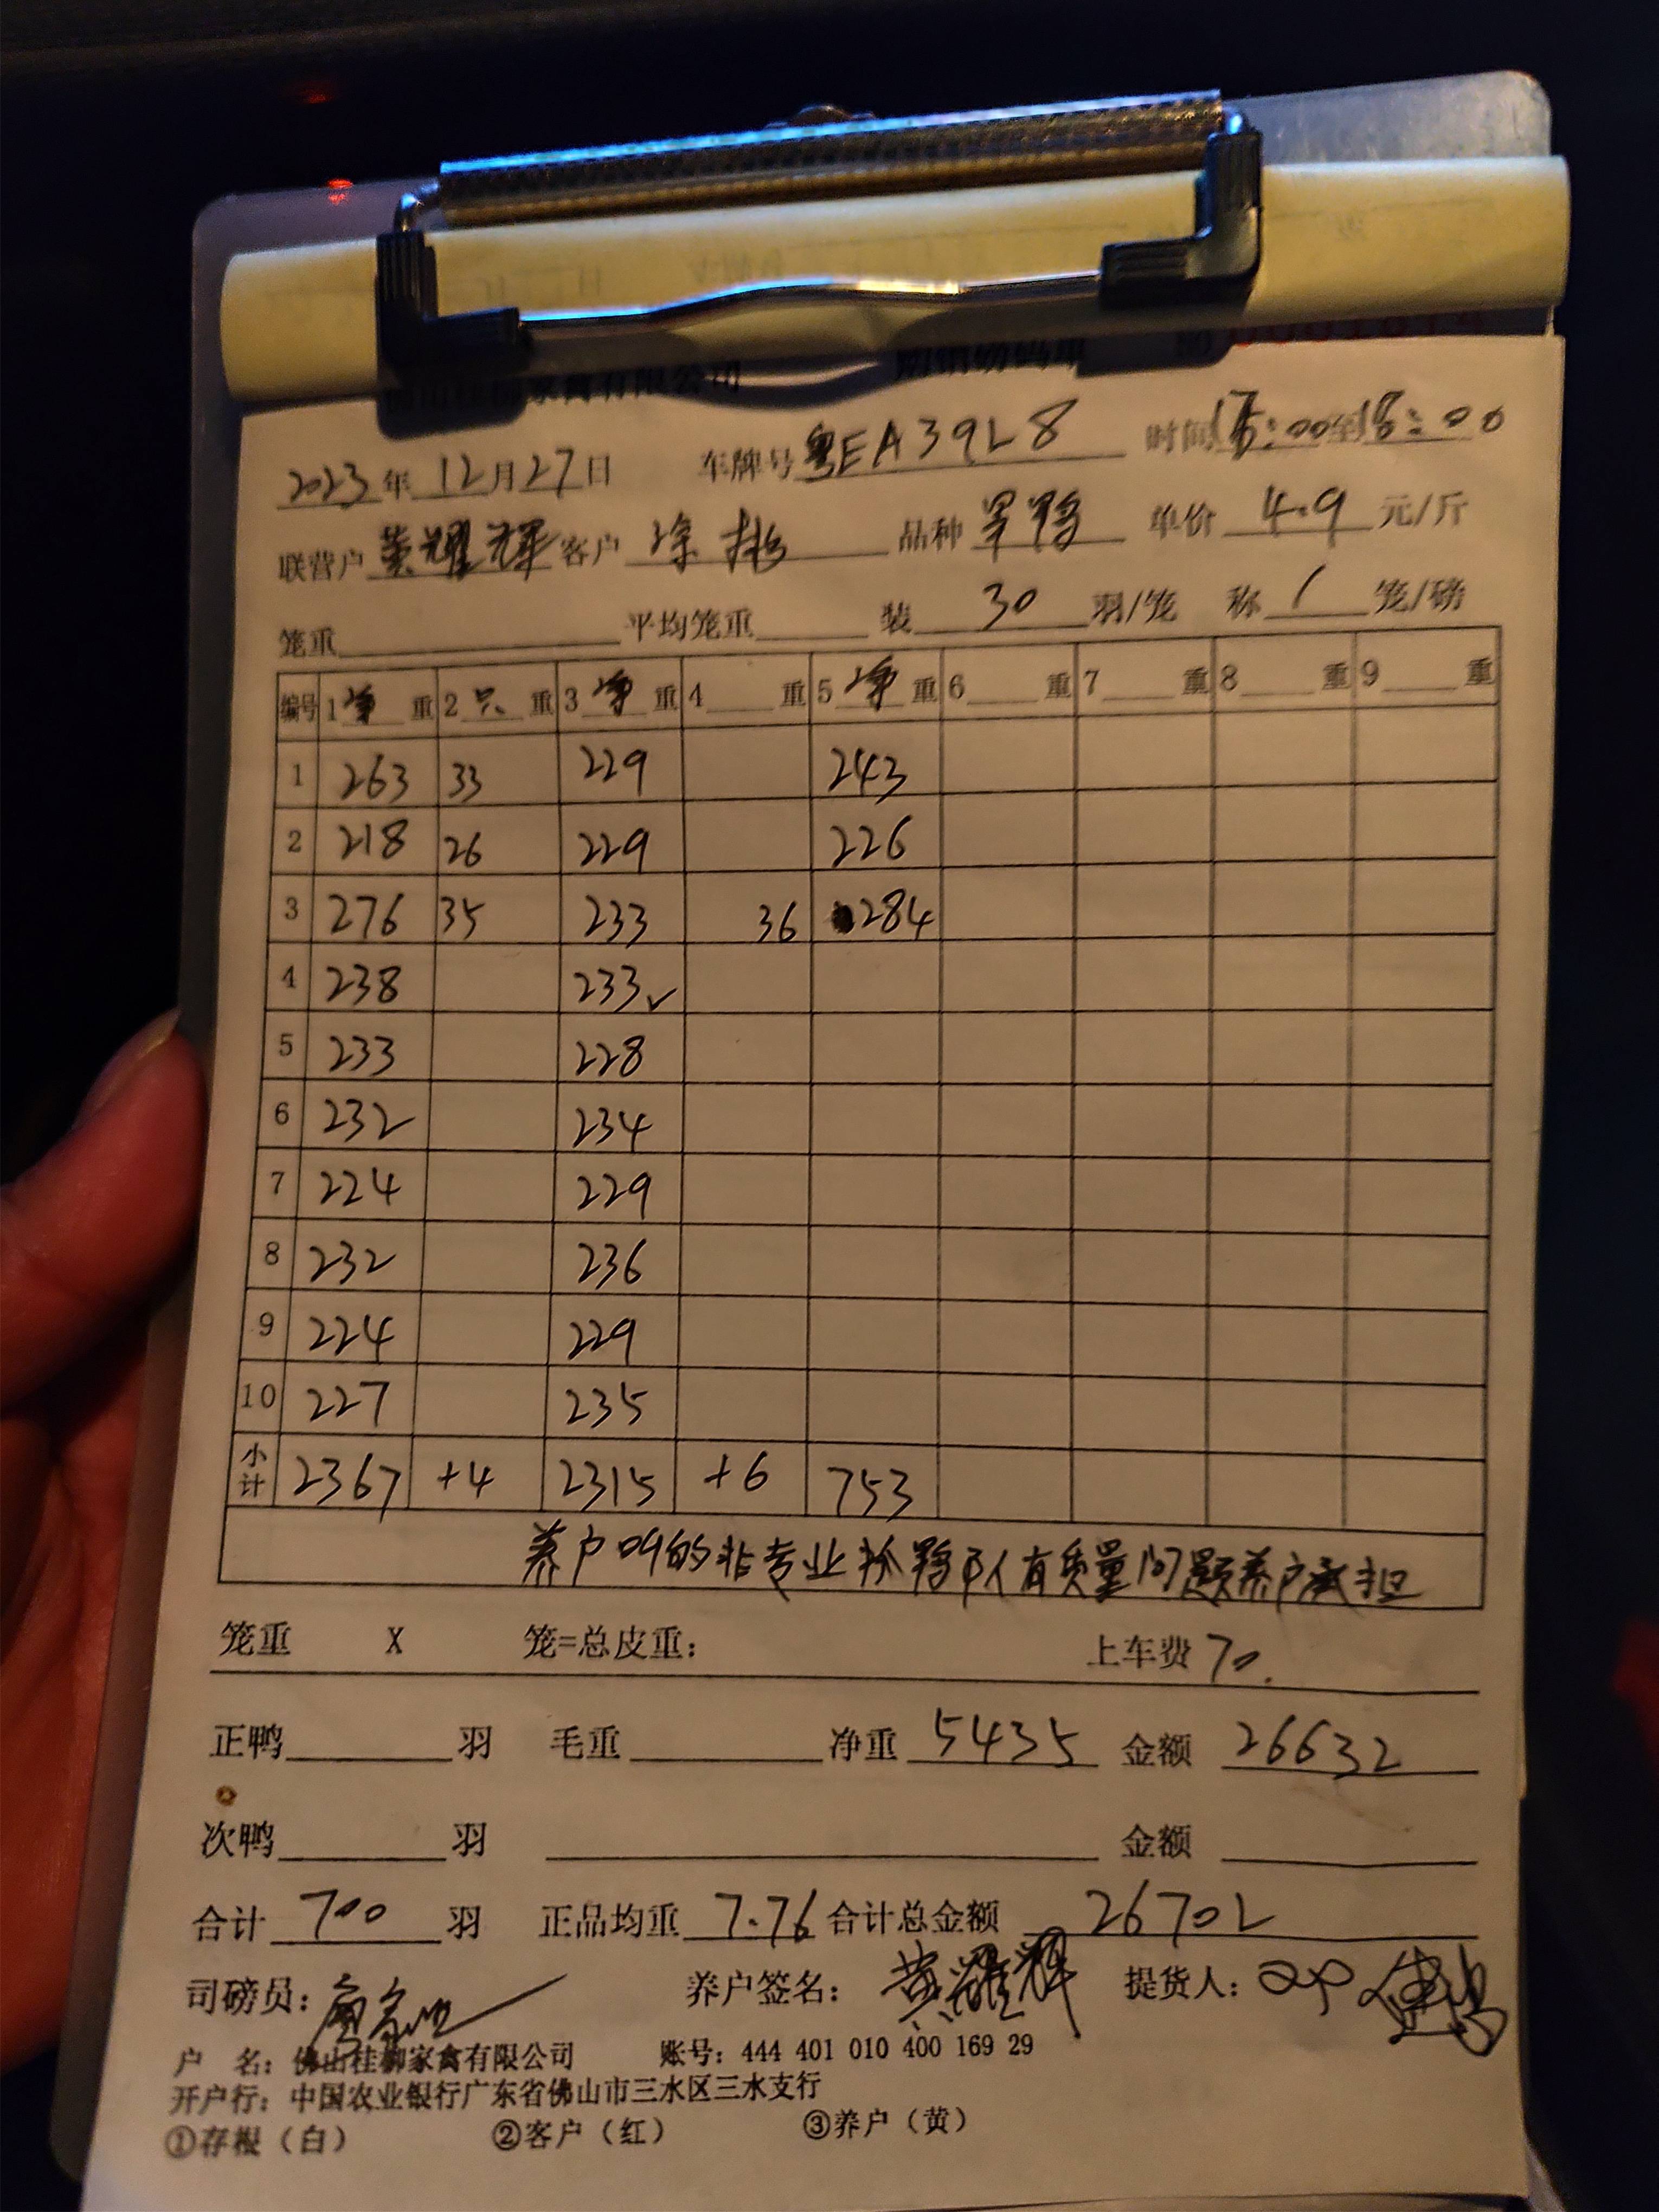 佛山桂柳家禽有限公司 购销磅码单 NO
2023年12月27日 车牌号粤EA39L8 时间15:00至18:00
联营户黄耀辉 客户 品种 单价4.9元/斤
笼重 平均笼重 装30羽/笼 称1笼/磅
编号 1净重 2只重 3净重 4重 5净重 6重 7重 8重 9重
1 263 33 229 243
2 218 26 229 226
3 276 35 233 36 284
4 238 233✓
5 233 228
6 232 234
7 224 229
8 232 236
9 224 229
10 227 235
小计 2367 +4 2315 +6 753
养户叫的非专业抓鸭队有质量问题养户承担
笼重 X 笼=总皮重: 上车费70.
正鸭 羽 毛重 净重5435 金额26632
次鸭 羽 金额
合计700羽 正品均重7.76 合计总金额26702
司磅员: 养户签名:黄耀辉 提货人:
户 名:佛山桂柳家禽有限公司 账号:444 401 010 400 169 29
开户行:中国农业银行广东省佛山市三水区三水支行
①存根(白) ②客户(红) ③养户(黄)